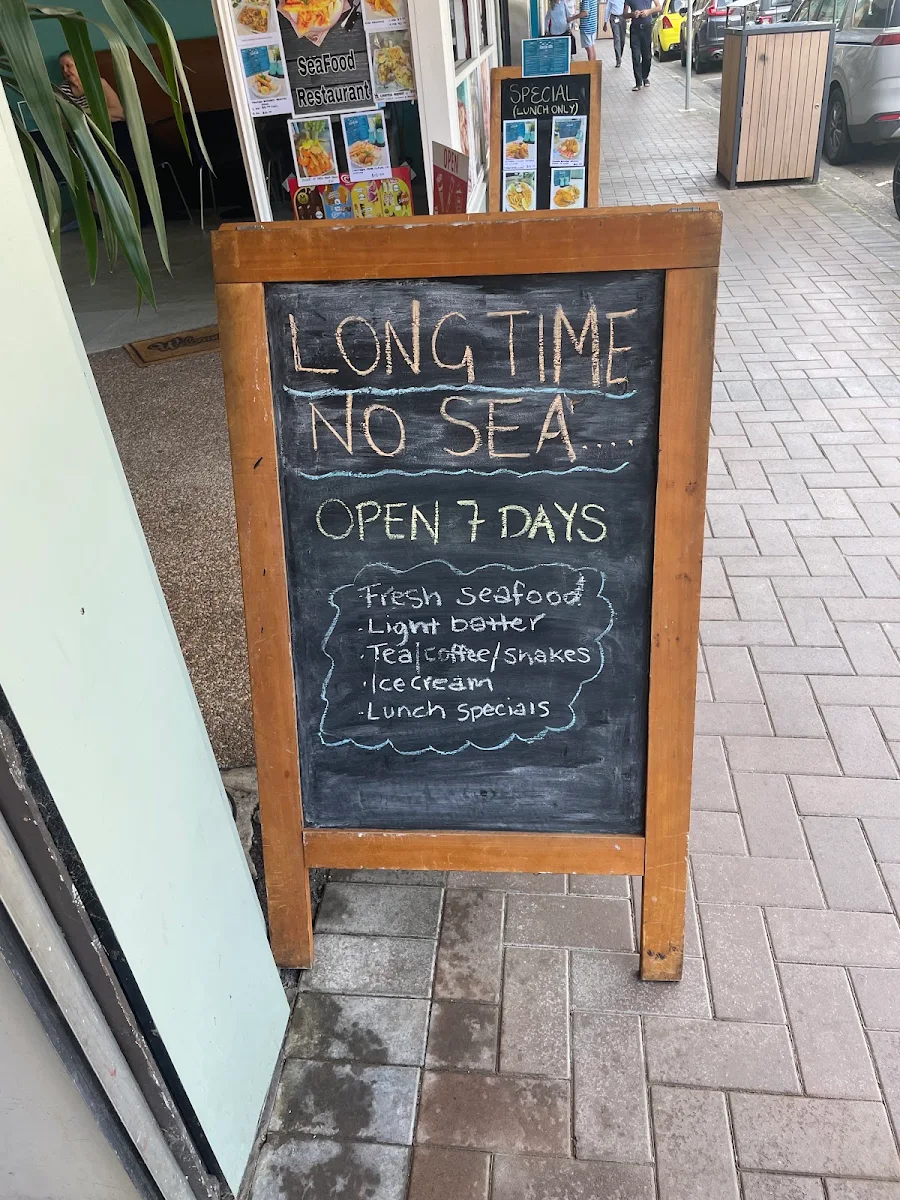 SeaFood
Restaurant
OPEN
SPECIAL
(LUNCH ONLY)
LONG TIME
NO SEA....
OPEN 7 DAYS
Fresh seafood
·Light batter
·Tea/coffee/shakes
·Ice cream
·Lunch specials